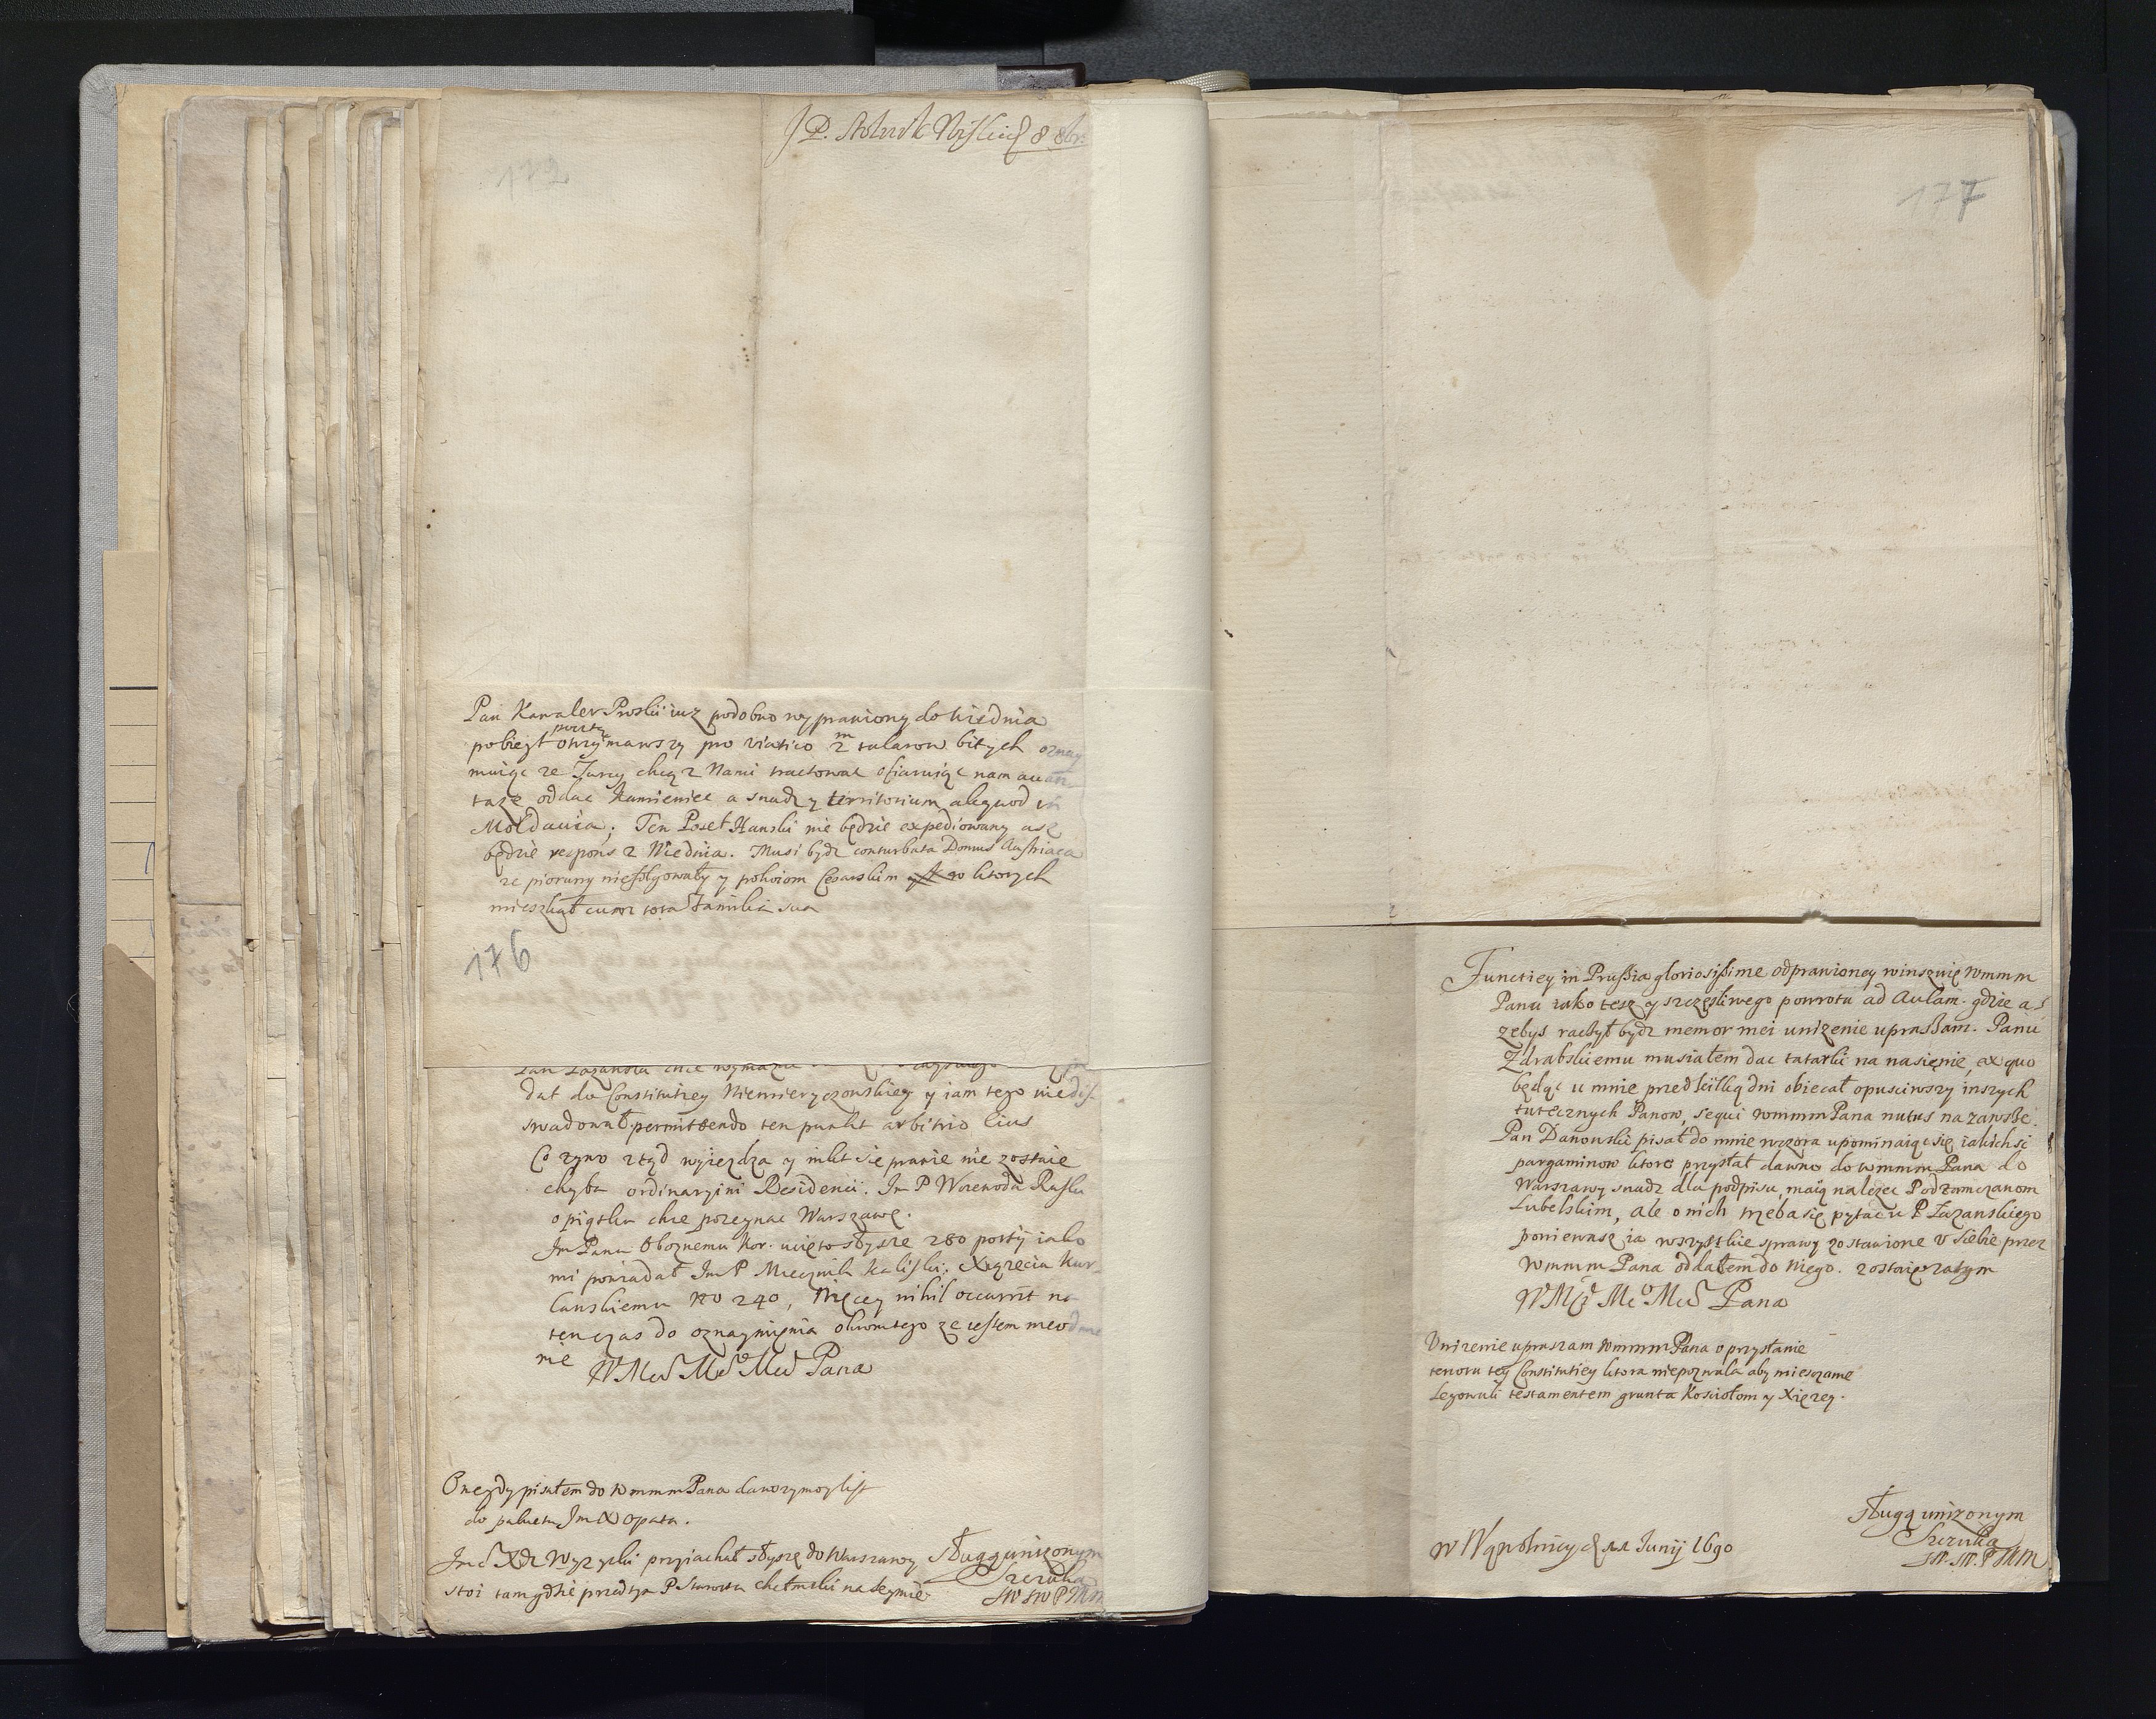 J P. Stolnik 8 8br.
172
Pan Kawaler Proski iuz podobno wyprawiony do Wiednia
pobiegł pocztą otrzymawszy pro viatico 2 m talarow bitych oznay
muiąc ze Turcy chcą z Nami tractowac ofiaruiąc nam auan
taze oddac Kamieniec a snadz y territorium aliquod in
Moldauia; Ten Poseł Hanski nie będzie expediowany asz
będzie respons z Wiednia. Musi bydz conturbata Domus Austriaca
ze pioruny niefolgowały y pokoiom Cesarskim w ktorych
mieszkał cum tota Familia sua
176
Pan Łazanski chce
dat do Constitutiey Niemieryczowskiey y iam tego niedis
swadował permittendo ten punkt arbitrio Eius
Co zywo ztąd wyiezdza y nikt sie prawie nie zostaie
chyba ordinaryini Residenci. Im P Woiewoda Ruski
o piątku chce pozegnac Warszawę.
Im Panu Oboznemu Kor: uięto słyszę 280 portij iako
mi powiadał Im P Miecznik Kaliski; Xiązęciu Kur
lanskiemu No 240, Więcey nihil occurrit na
ten czas do oznaymięnia okrom tego ze iestem nieod
nie WMci Mci Mci Pana
Onegdy pisałem do WmmmPana dawszy moy list
do pakietu Im X Opata.
Imci Xdz Wyzycki przyiachał słyszę do Warszawy
stoi tam gdzie przed tym P Starosta chełmski na Seymie
Sługą unizonym
Szczuka
SW SW P Mm
177
Functiey in Prussia gloriosissime odprawioney winszuię Wmmm
Panu iako tesz y szczęsliwego powrotu ad Aulam. gdzie as
zebys raczył bydz memor mei unizenie uprassam. Panu
Zdrabskiemu musiałem dac tatarki na nasięnie, ex quo
będąc u mnie przed kilką dni obiecał opusciwszy inszych
tutecznych Panow, sequi WmmmPana nutus na zawsze.
Pan Danowski pisał do mnie wczora upominaiąc się iakichsi
pargaminow ktore przysłał dawno do Wmmm Pana do
Warszawy snadz dla podpisu, maią nalezec Podzamczanom
Lubelskim, ale o nich trzeba się pytac u P Łazanskiego
poniewasz ia wszystkie sprawy zostawione u Siebie przez
Wmmm Pana oddałem do Niego. zostaię zatym
WMci Mci Mci Pana
Unizenie upraszam WmmmPana o przysłanie
tenoru tey Constitutiey ktora niepozwala aby mieszczanie
legowali testamentem grunta Kosciołom y Xięzey.
Sługą unizonym
Szczuka
SW. SW. P Mm
w Wąwolnicy d 11 Junij 1690